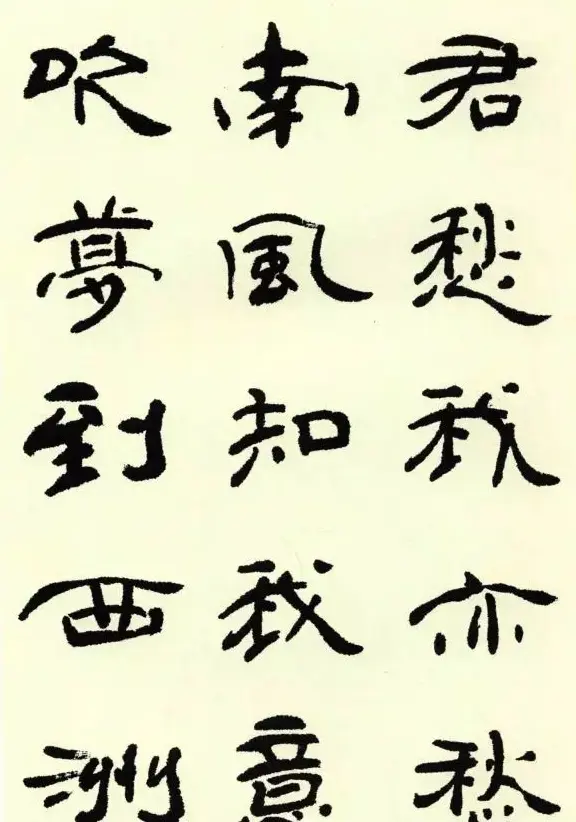 君愁我亦愁
南風知我意
吹夢到西洲